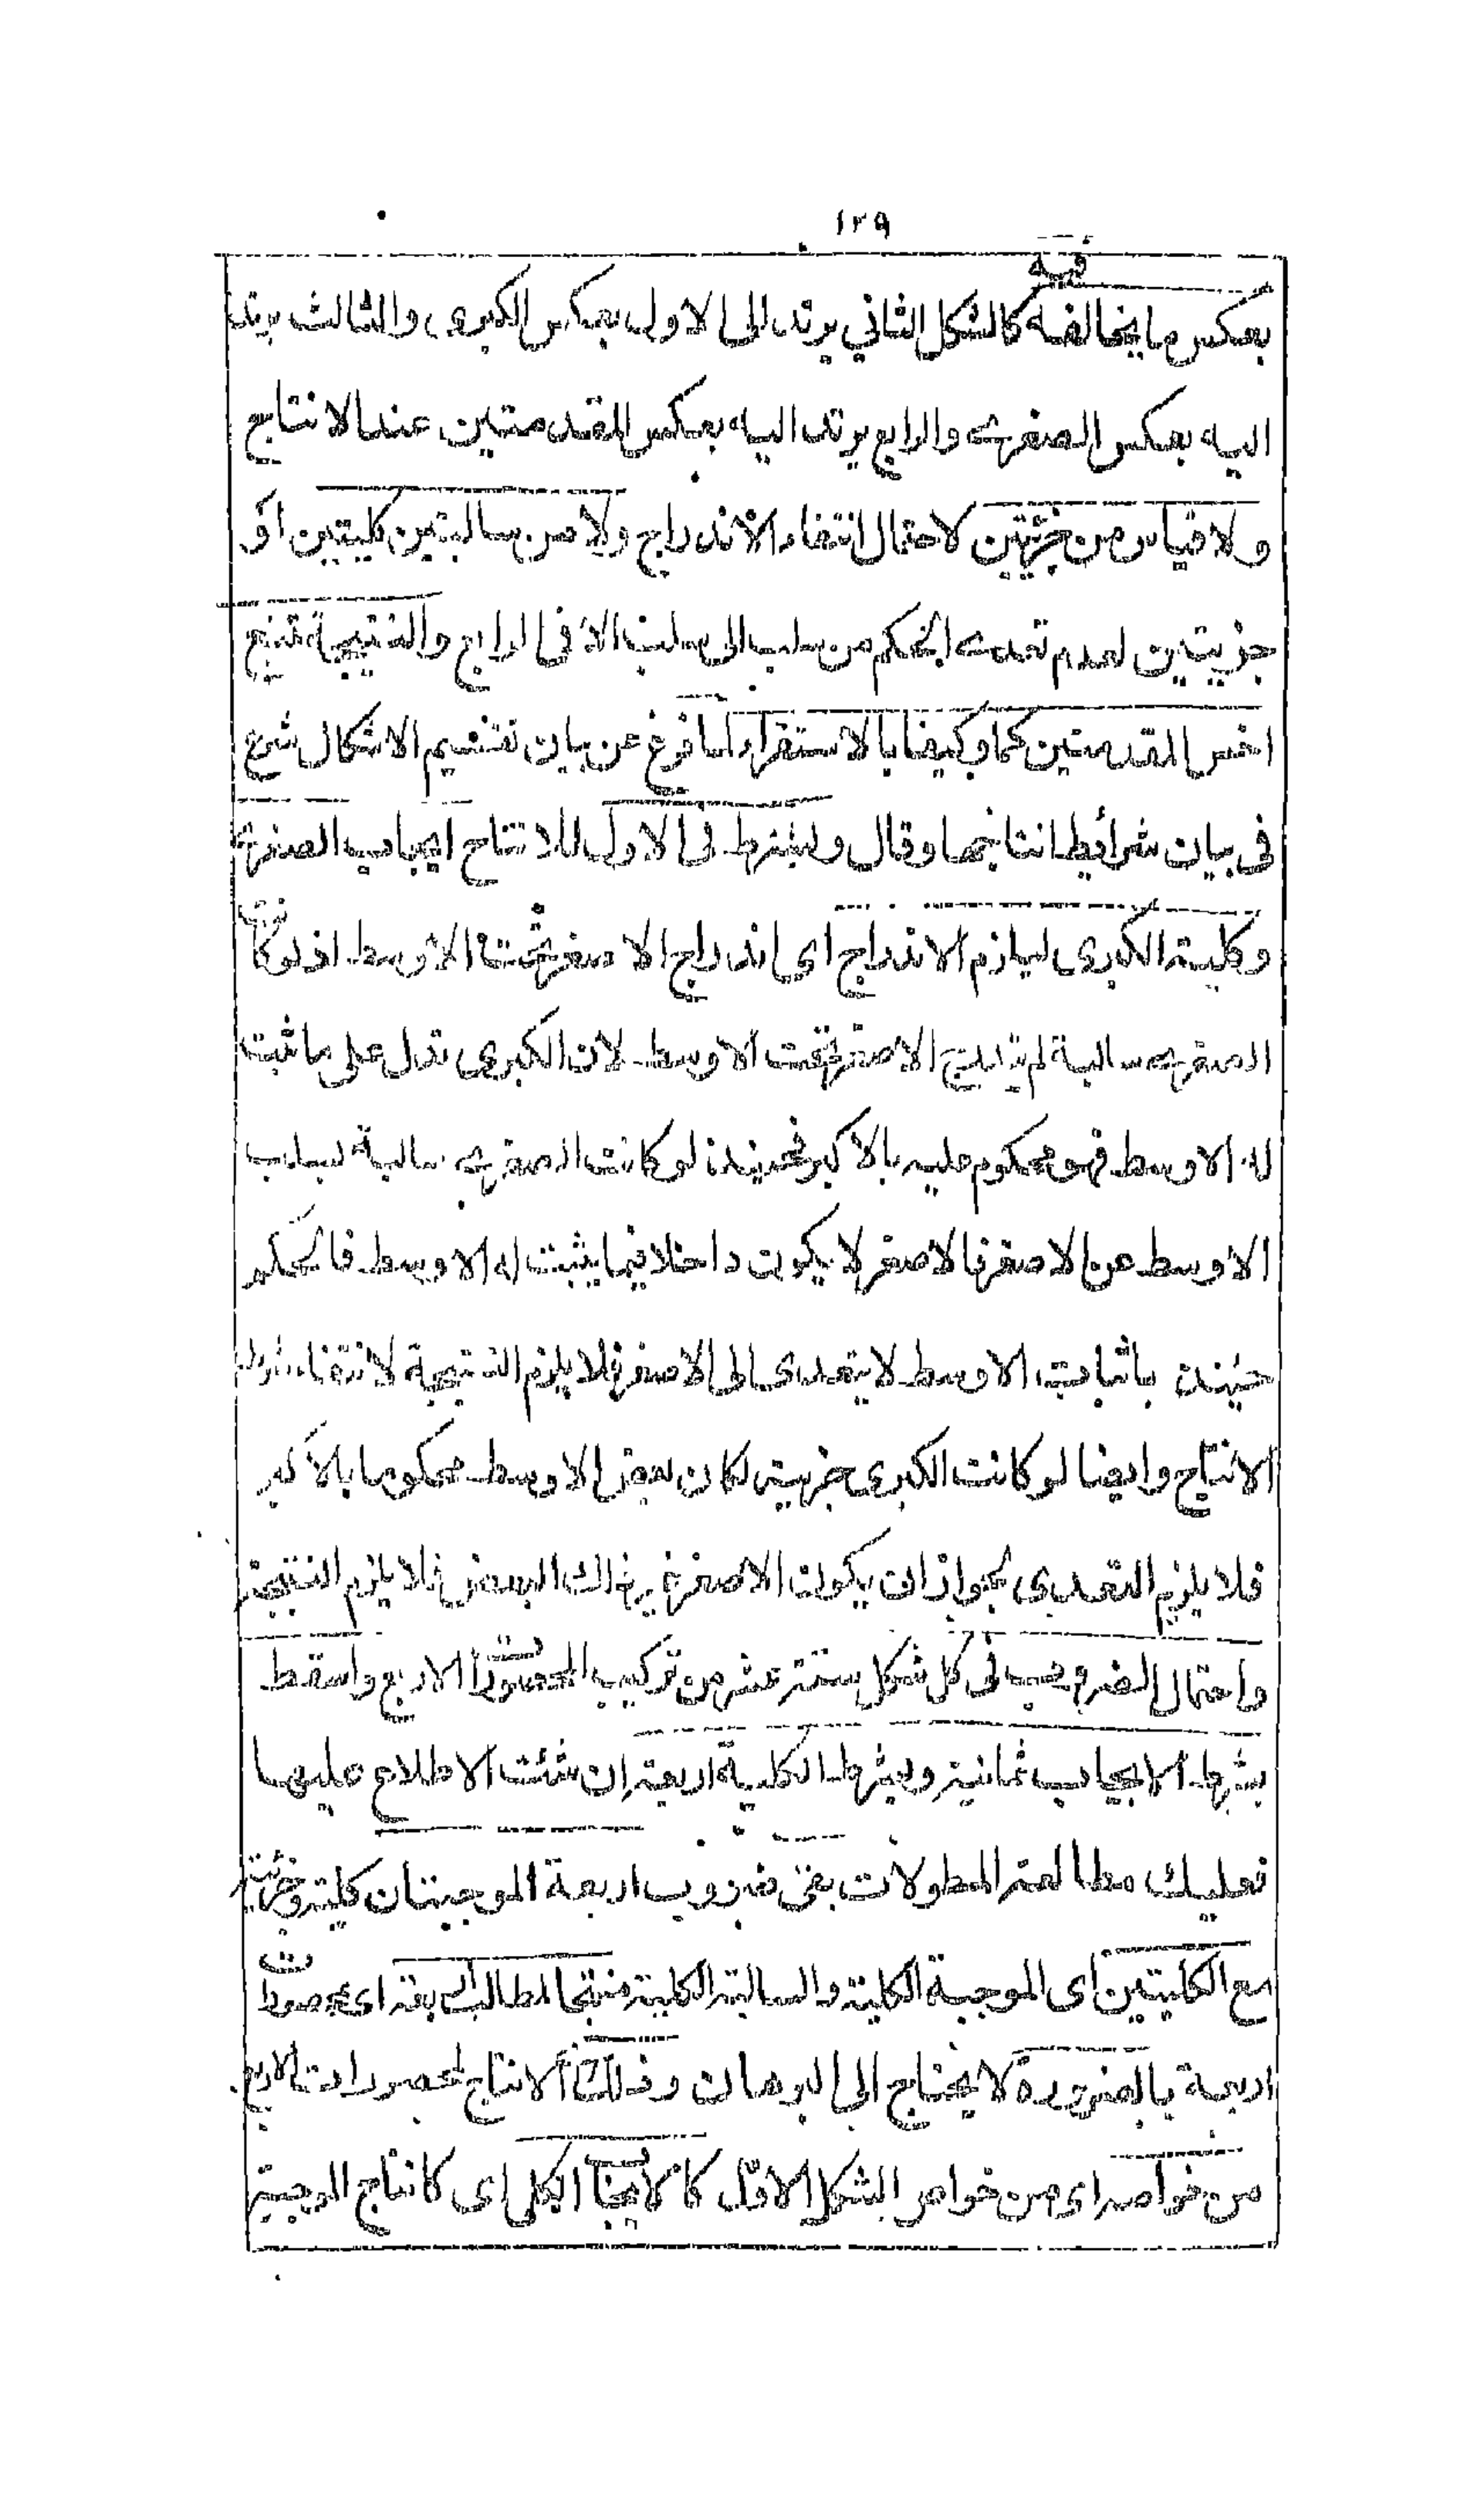 ١٢٩
فيه
بعكس ما يخالفه كالشكل الثاني يرتد الى الاول بعكس الكبرى والثالث يرتد
اليه بعكس الصغرى والرابع يرتد اليه بعكس المقدمتين عند الانتاج
ولا قياس من جزئيتين لاحتمال انتفاء الاندراج ولا من سالبتين كليتين او
جزئيتين لعدم تعدى الحكم من سلب الى سلب الا فى الرابع والنتيجة تتبع
اخس المقدمتين كما وكيفا بالاستقراء لما فرغ عن بيان تقسيم الاشكال شرع
فى بيان شرائط انتاجها وقال ويشترط فى الاول للانتاج ايجاب الصغرى
وكلية الكبرى ليلزم الاندراج اى اندراج الاصغر تحت الاوسط اذ لو كانت
الصغرى سالبة لم يندرج الاصغر تحت الاوسط لان الكبرى تدل على ما ثبت
له الاوسط فهو محكوم عليه بالاكبر فحينئذ لو كانت الصغرى سالبة لسلب
الاوسط عن الاصغر فالاصغر لا يكون داخلا فيما يثبت له الاوسط فالحكم
حينئذ باثبات الاوسط لا يتعدى الى الاصغر فلا يلزم النتيجة لانتفاء شرط
الانتاج وايضا لو كانت الكبرى جزئية لكان بعض الاوسط محكوما بالاكبر
فلا يلزم التعدى لجواز ان يكون الاصغر غير ذلك البعض فلا يلزم النتيجة
واحتمال الضروب فى كل شكل ستة عشر من تركيب المحصورات الاربع واسقط
بشرط الايجاب ثمانية وبشرط الكلية اربعة ان شئت الاطلاع عليها
فعليك مطالعة المطولات بقى ضروب اربعة الموجبتان كلية وجزئية
مع الكليتين اى الموجبة الكلية والسالبة الكلية منتجا لمطالب اربعة اى محصورات
اربعة بالضرورة لا يحتاج الى البرهان وذلك الانتاج لمحصورات الاربع
من خواصه اى من خواص الشكل الاول كالايجاب الكلى اى كانتاج الموجبة